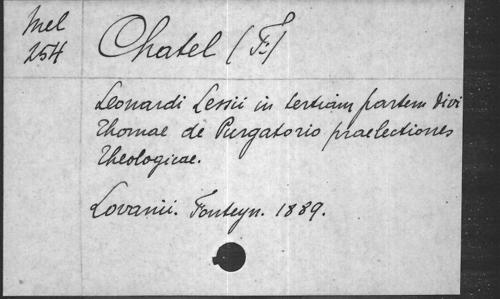 Mel
254
Chatel (F.)
Leonardi Lessii in tertiam partem divi
Thomae de Purgatorio praelectiones
theologicae.
Lovanii. Fonteyn. 1889.